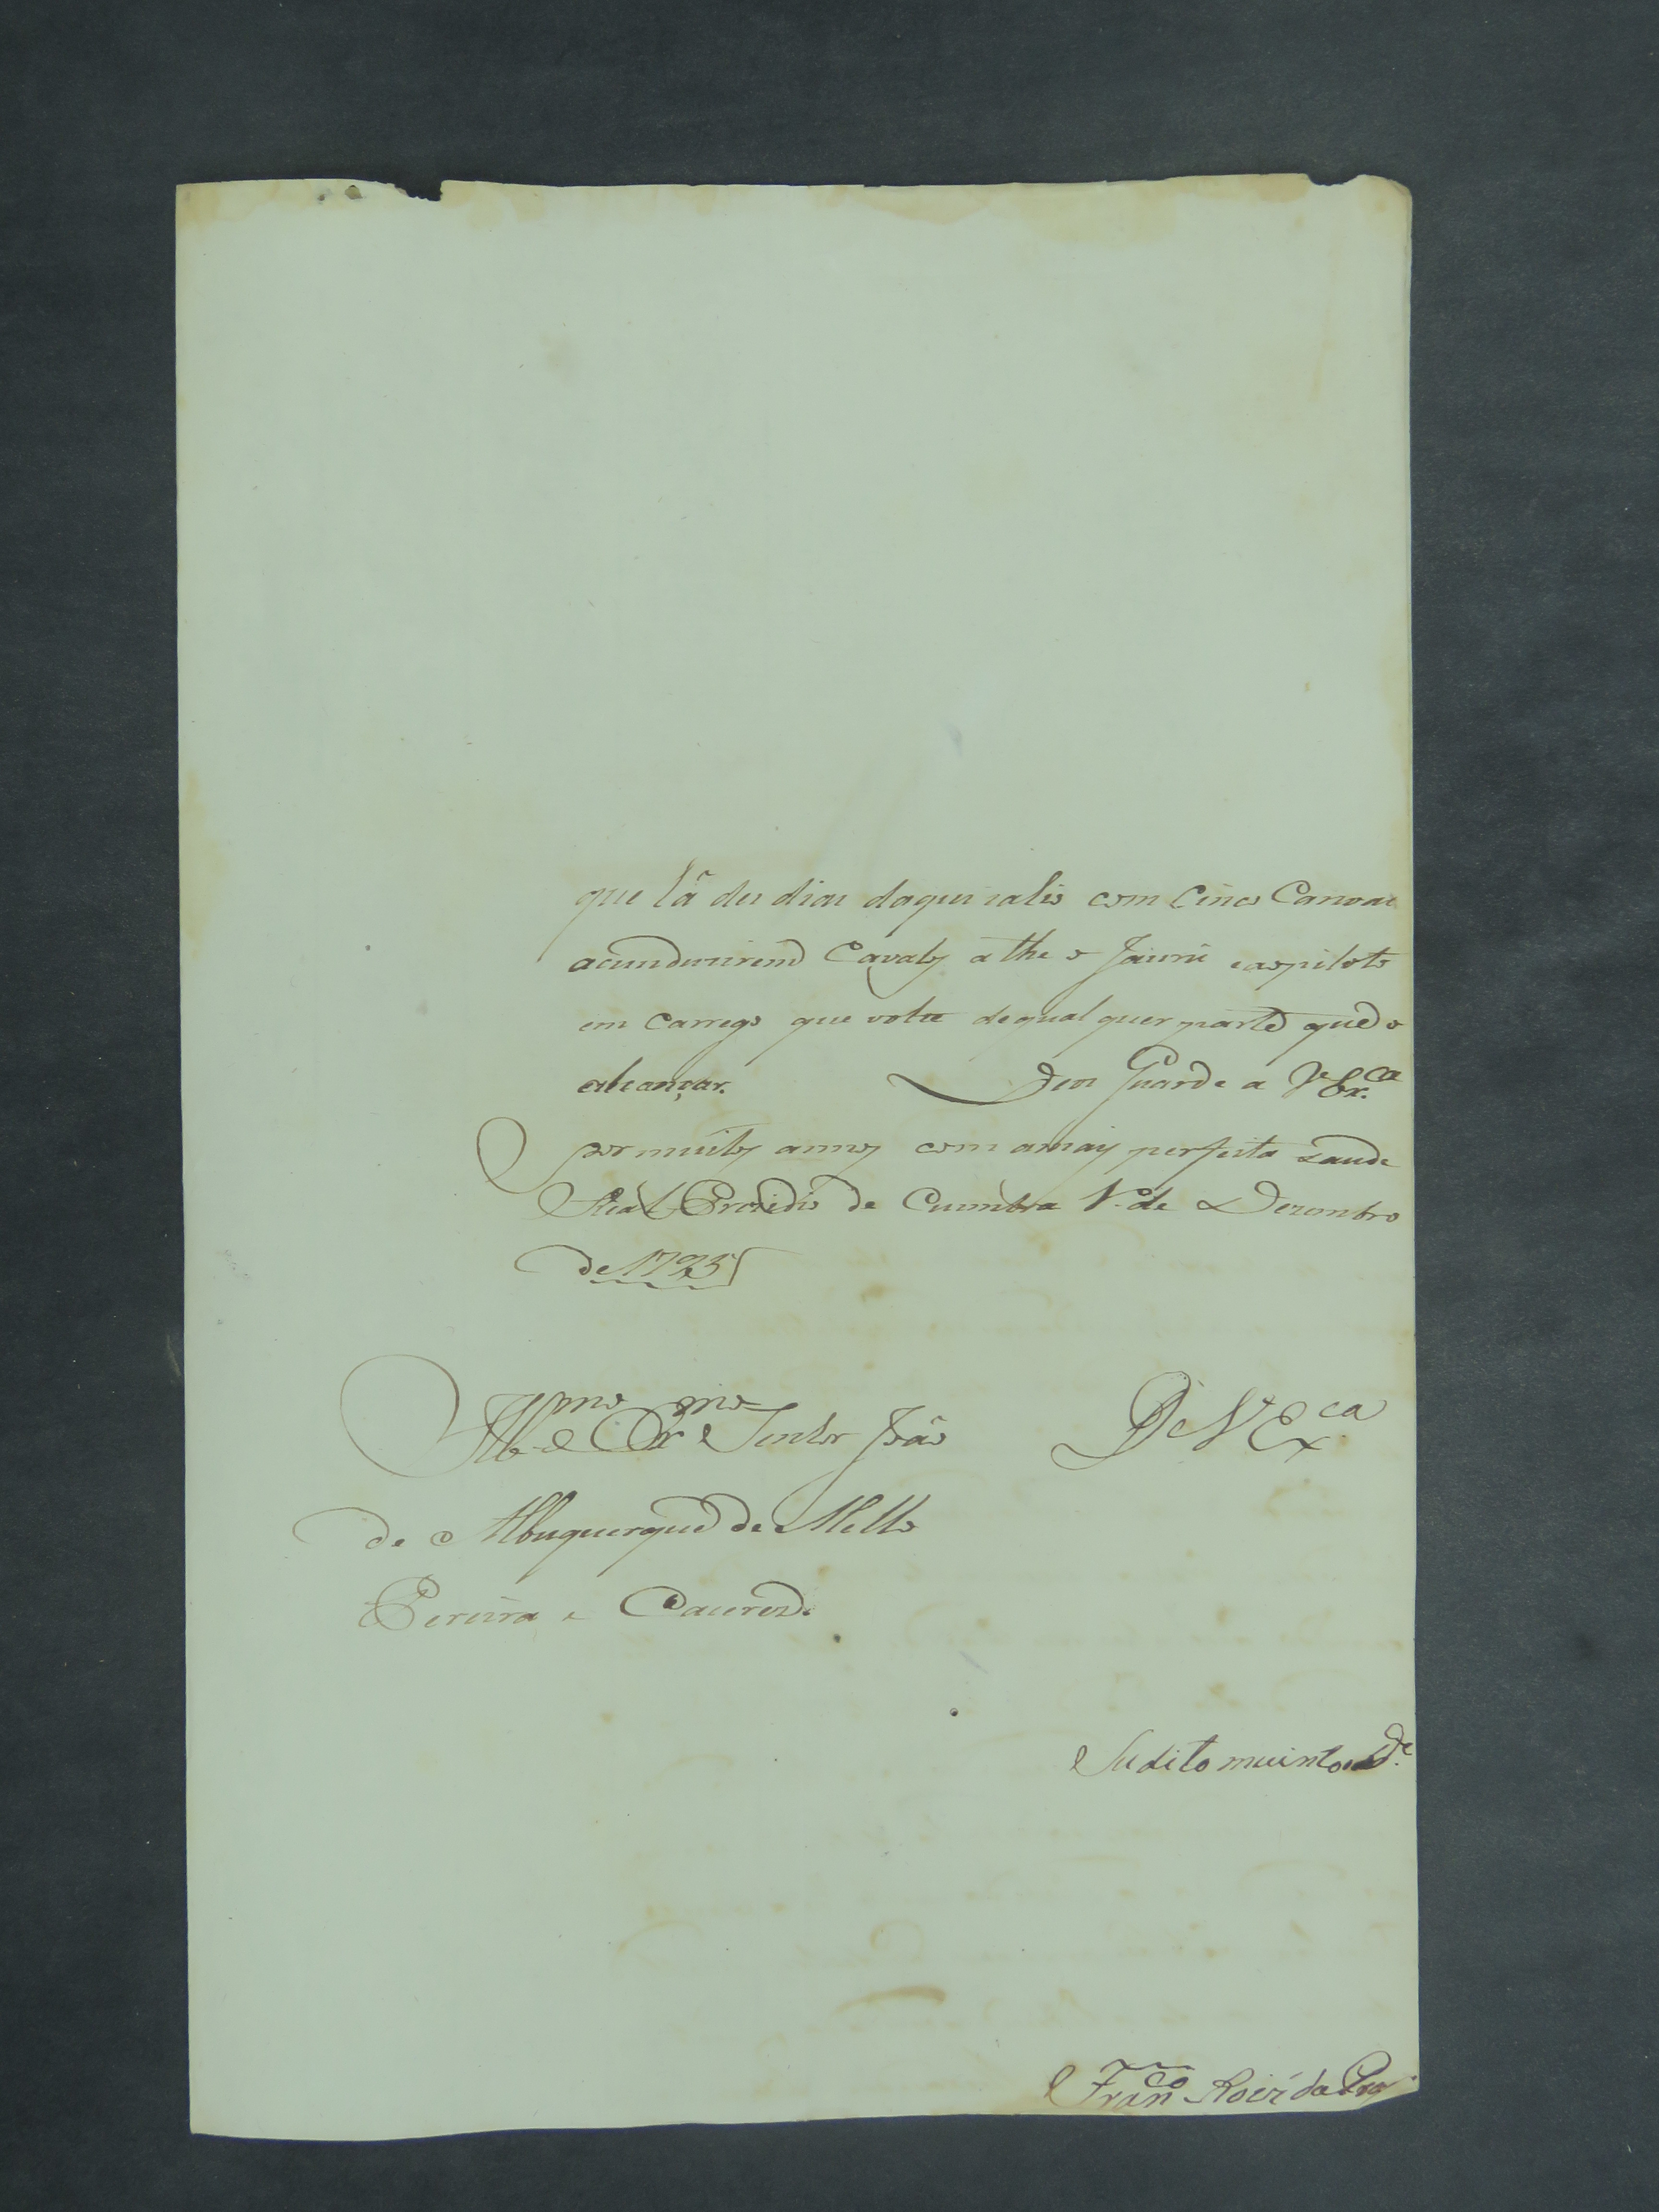 que lá des dias daqui sahio com Cinco Canoas
acunduzirem Cavalos athe o Jaurú
em carrego que volte de qual quer parte que o
alcançar. Deos Guarde a V.Ex.ca
por muitos annos com a mais perfeita saude
Real Prezidio de Cuimbra 1.º de Dezembro
de 1795
Ill.mo e Ex.mo Senhor João De V Ex.ca
de Albuquerque de Mello
Pereira e Caceres.
Sudito muinto
Fran.co Roiz do Prado